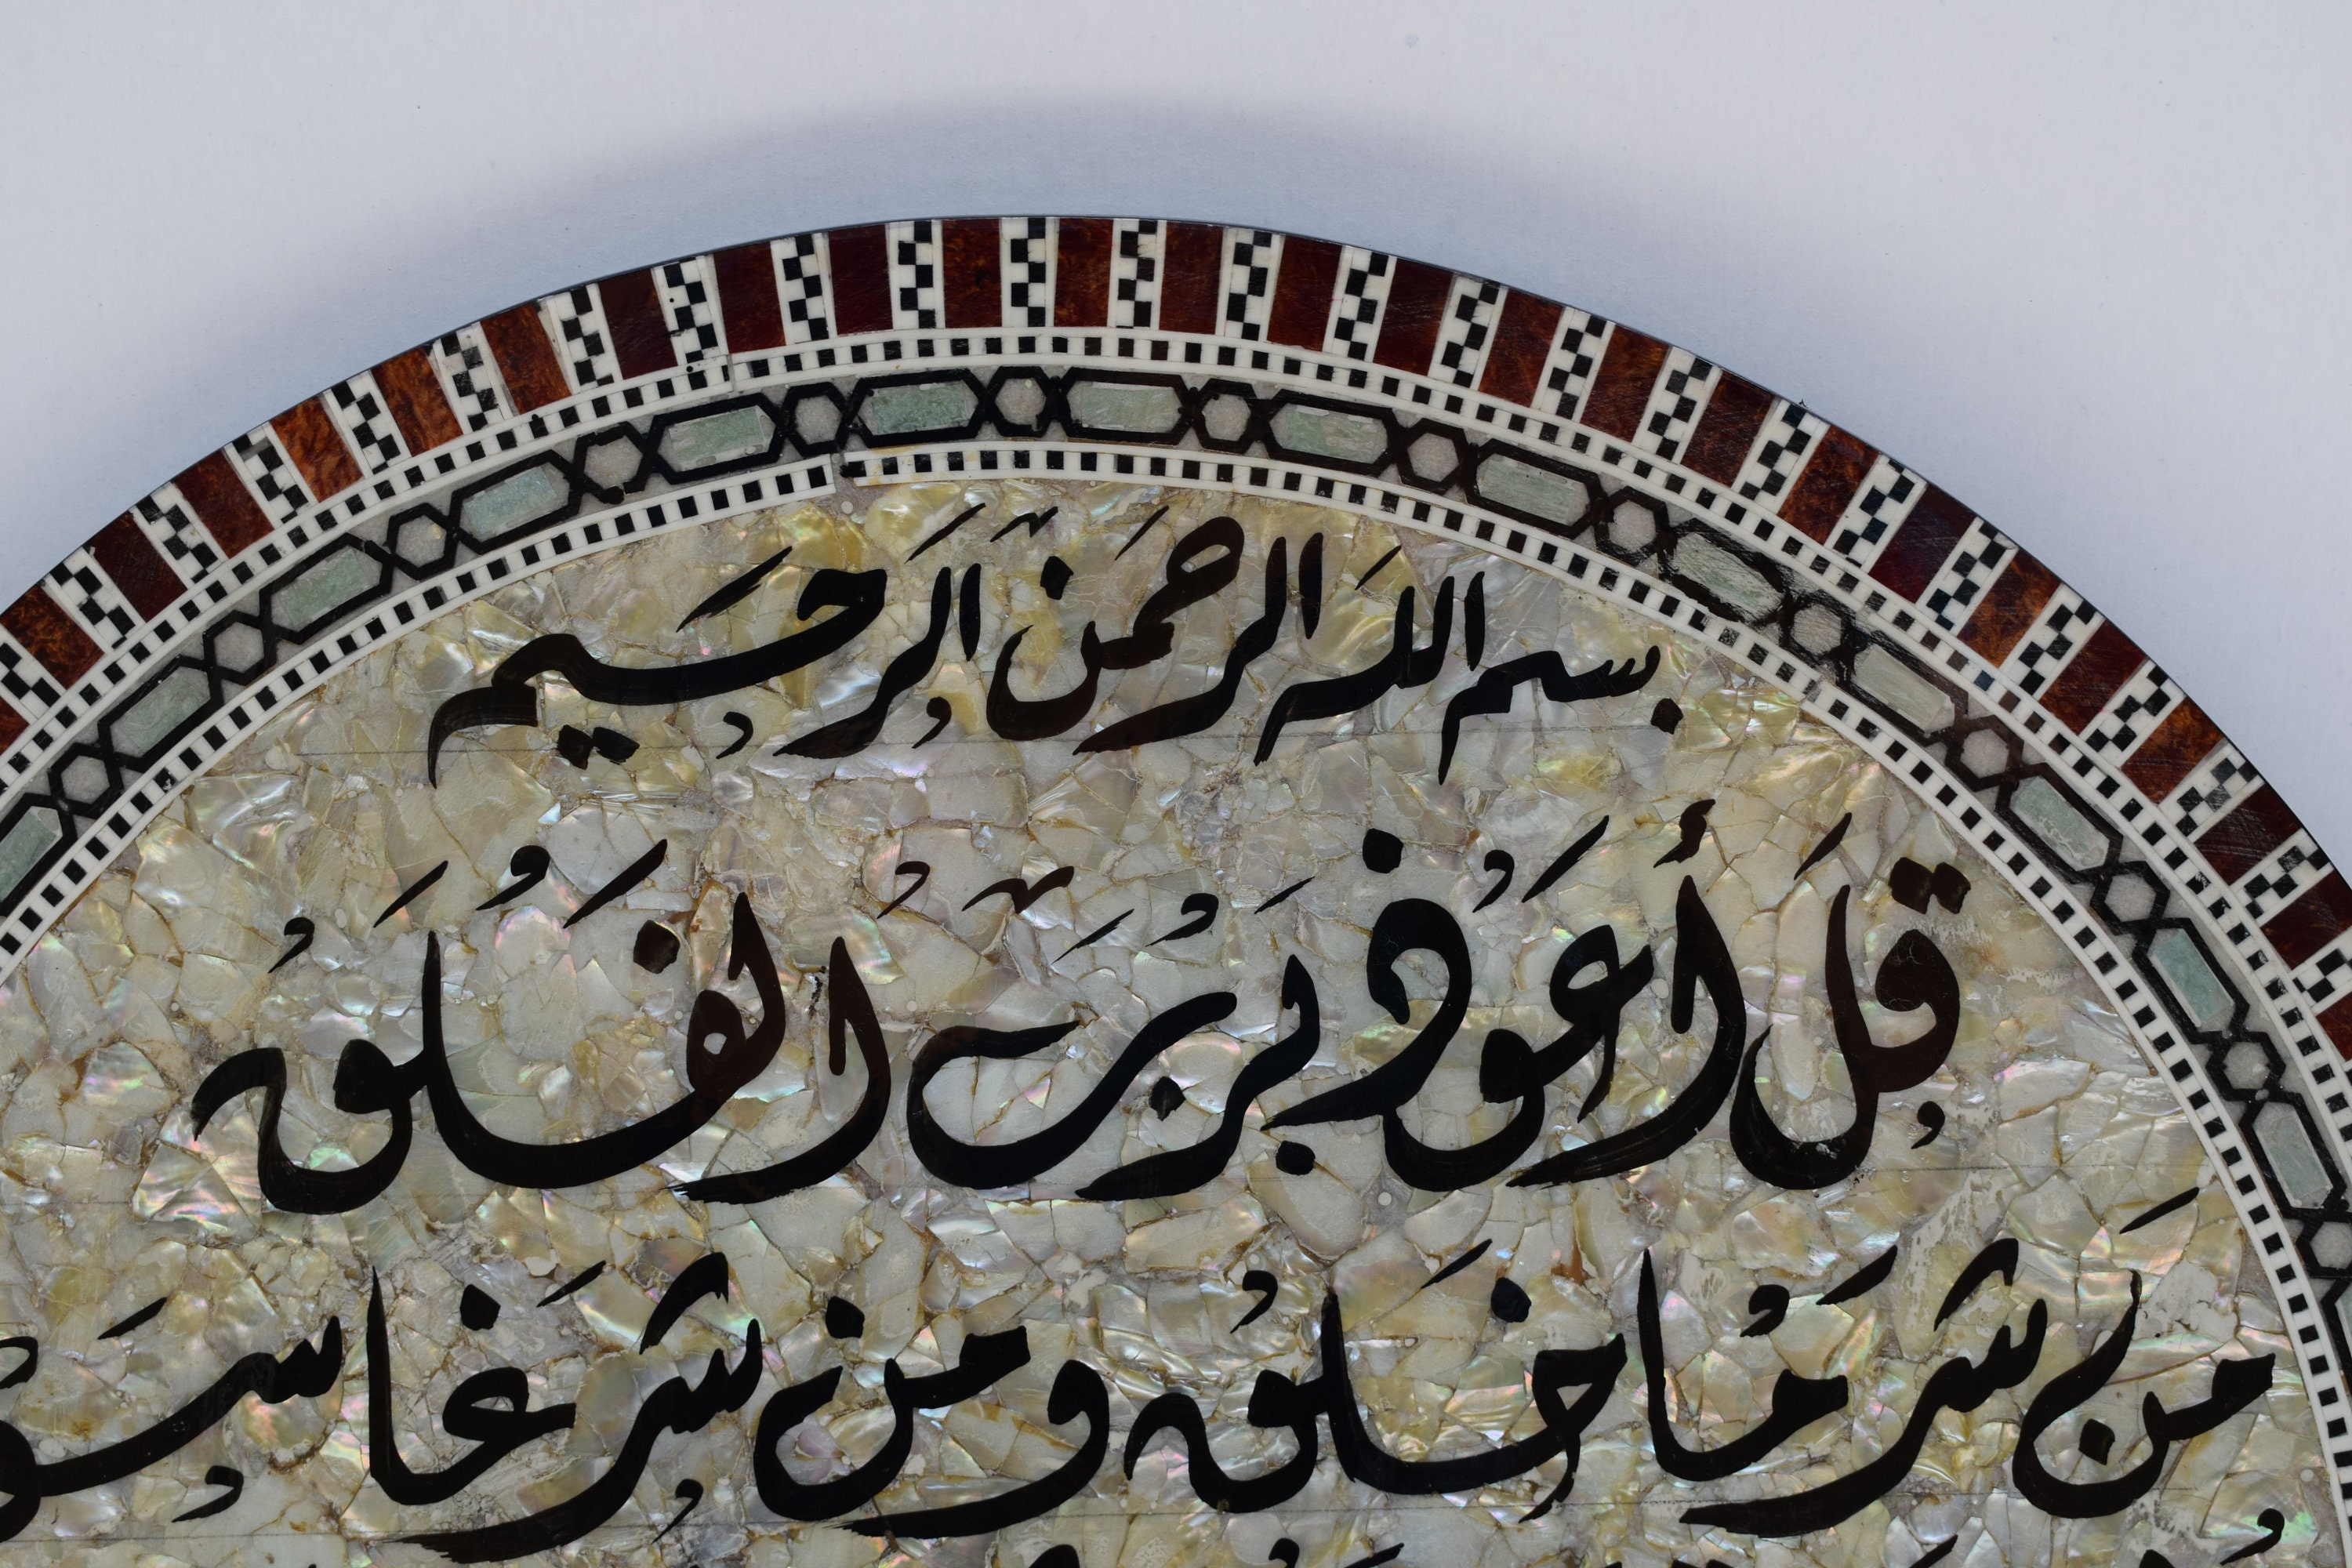 بسم الله الرحمن الرحيم
قل أعوذ برب الفلق
من شر ما خلق ومن شر غاسق